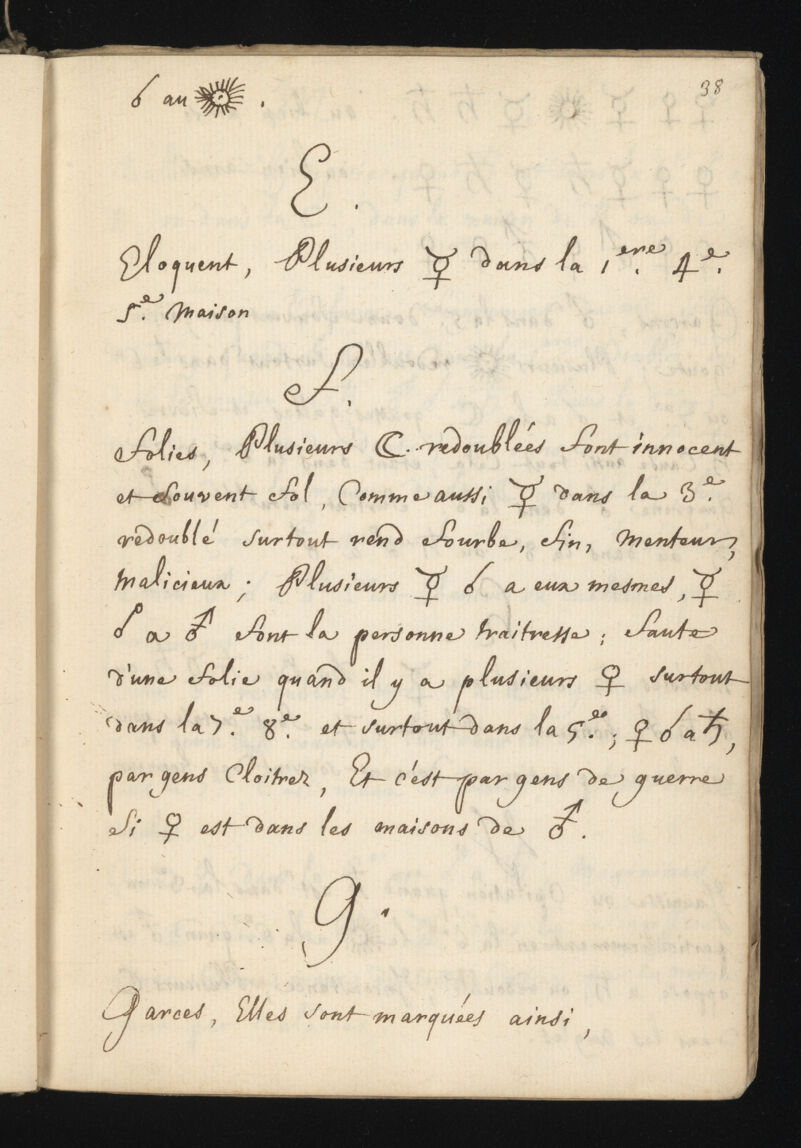 38
☌ au ☉.
E.
Eloquent, Plusieurs ☿ dans la 1.ere 4.e
5.e Maison
F.
Folies, Plusieurs ☾. redoublées font innocent
et souvent fol, Comme aussi ☿ dans la 3.e
redoublé surtout rend fourbe, fin, menteur,
malicieux; Plusieurs ☿ ☌ a eux mesmes, ☿
☍ a ♂ font la personne traitresse; faute
d'une folie quand il y a plusieurs ♀ surtout
dans la 7.e 8.e et surtout dans la 5.e; ♀ ☌ a ♄,
par gens Cloitrez, Et c'est par gens de guerre
Si ♀ est dans les maisons de ♂.
G.
Garces, Elles sont marquées ainsi,